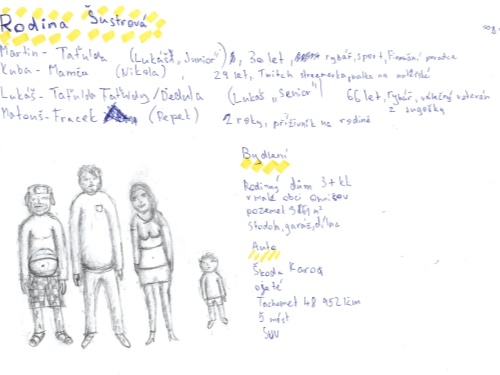 Rodina Šustrová
Martin - Taťulda (Lukášš „Junior"), 30 let, rybář, sport, Finanční poradce
Kuba - Mamča (Nikola), 29 let, Twitch streamerka, na mateřské
Lukáš - Taťulda Taťuldy/Dědula (Lukáš „Senior") 66 let, rybář, válečný veterán
z
Matouš - Fracek (Pepek) 2 roky, příživník na rodině
Bydlení
Rodinný dům 3+kk
v malé obci
pozemek m²
Stodola, garáž, dílna
Auto
Škoda Karoq
ojeté
Tachometr 48 952 km
5 míst
SUV